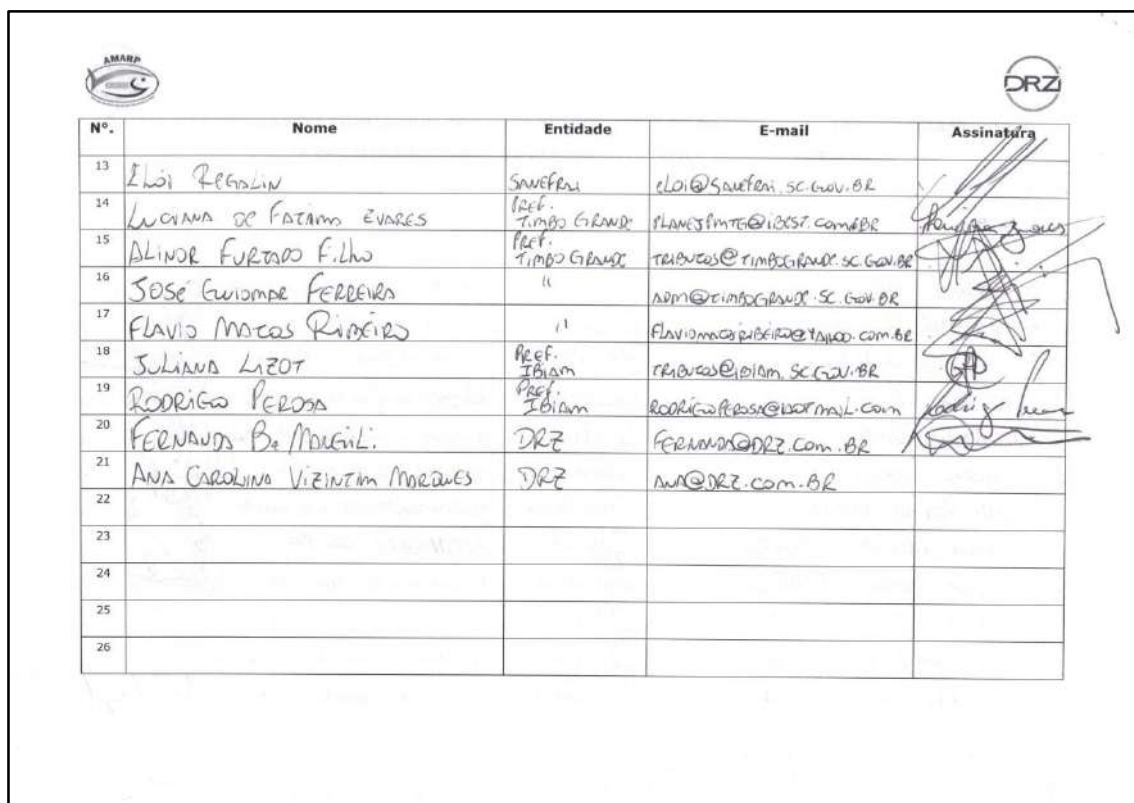 AMARP
DRZ
Nº. Nome Entidade E-mail Assinatura
13 ELÓI REGALIN SANEFRAI eLOi@SANEFRAI.SC.GOV.BR
14 LUCIANA DE FATIMA ZUARES PREF. TIMBO GRANDE PLANEJPMTG@iBEST.COM.BR
15 ALINOR FURTADO FILHO PREF. TIMBO GRANDE TRIBUTOS@TIMBOGRANDE.SC.GOV.BR
16 JOSÉ GUIOMAR FERREIRA " ADM@TIMBOGRANDE.SC.GOV.BR
17 FLAVIO MATOS RIBEIRO " FLAVIOMATOSRIBEIRO@YAHOO.COM.BR
18 JULIANA LIZOT PREF. IBIAM TRIBUTOS@IBIAM.SC.GOV.BR
19 RODRIGO PEROSA PREF. IBIAM RODRIGOPEROSA@HOTMAIL.COM Rodrigo
20 FERNANDA B. DRZ FERNANDA@DRZ.COM.BR
21 ANA CAROLINA VIZINTIM MARQUES DRZ ANA@DRZ.COM.BR
22
23
24
25
26